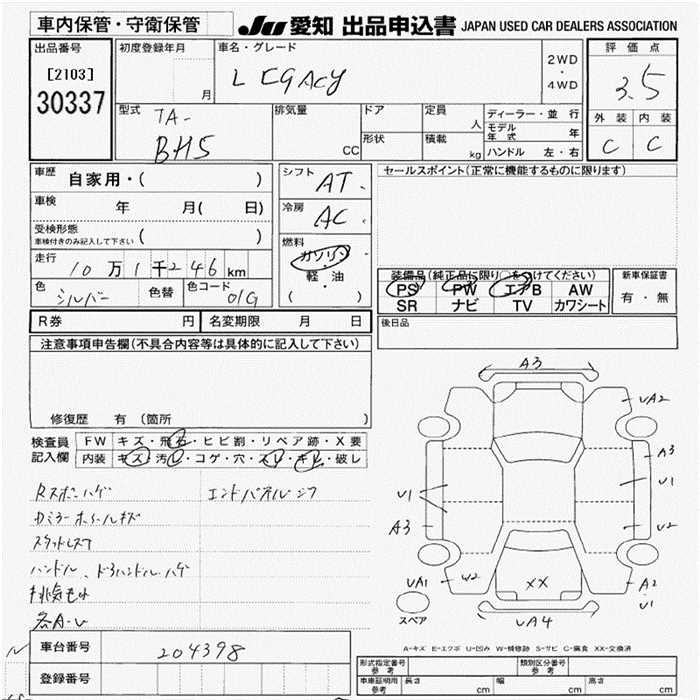 車内保管・守衛保管
JU 愛知 出品申込書 JAPAN USED CAR DEALERS ASSOCIATION
出品番号
[2103]
30337
初度登録年月
月
車名・グレード
LEGACY
2WD
・
4WD
評価点
3.5
外装 内装
C C
型式
TA-
BH5
排気量
CC
ドア
形状
定員
人
積載
kg
ディーラー・並行
モデル年式 年
ハンドル 左・右
車歴
自家用・( )
車検
年 月( 日)
受検形態
車検付きのみ記入して下さい ( )
走行
10万1千246km
色
シルバー
色替
色コード
01G
シフト
AT
冷房
AC
燃料
ガソリン
軽・油
( )
セールスポイント(正常に機能するものに限ります)
装備品(純正品に限り○をつけてください)
PS PW エアB AW
SR ナビ TV カワシート
新車保証書
有・無
後日品
R券 円 名変期限 月 日
注意事項申告欄(不具合内容等は具体的に記入して下さい)
修復歴 有 (箇所 )
検査員
記入欄
FW キズ・飛石・ヒビ割・リペア跡・X要
内装 キズ・汚レ・コゲ・穴・スレ・キレ・破レ
Rスポーハゲ エンドパネルシワ
スタッドレス
ハンドル、ドアハンドルハゲ
各A-U
車台番号
204398
登録番号
A3
UA2
A3
U1
U1
A3
U2
UA1
W2
XX
A2
U1
UA4
スペア
A-キズ E-エクボ U-凹み W-補修跡 S-サビ C-腐食 XX-交換済
形式指定番号
参考
類別区分番号
参考
車庫証明用
参考
長さ cm 幅 cm 高さ cm